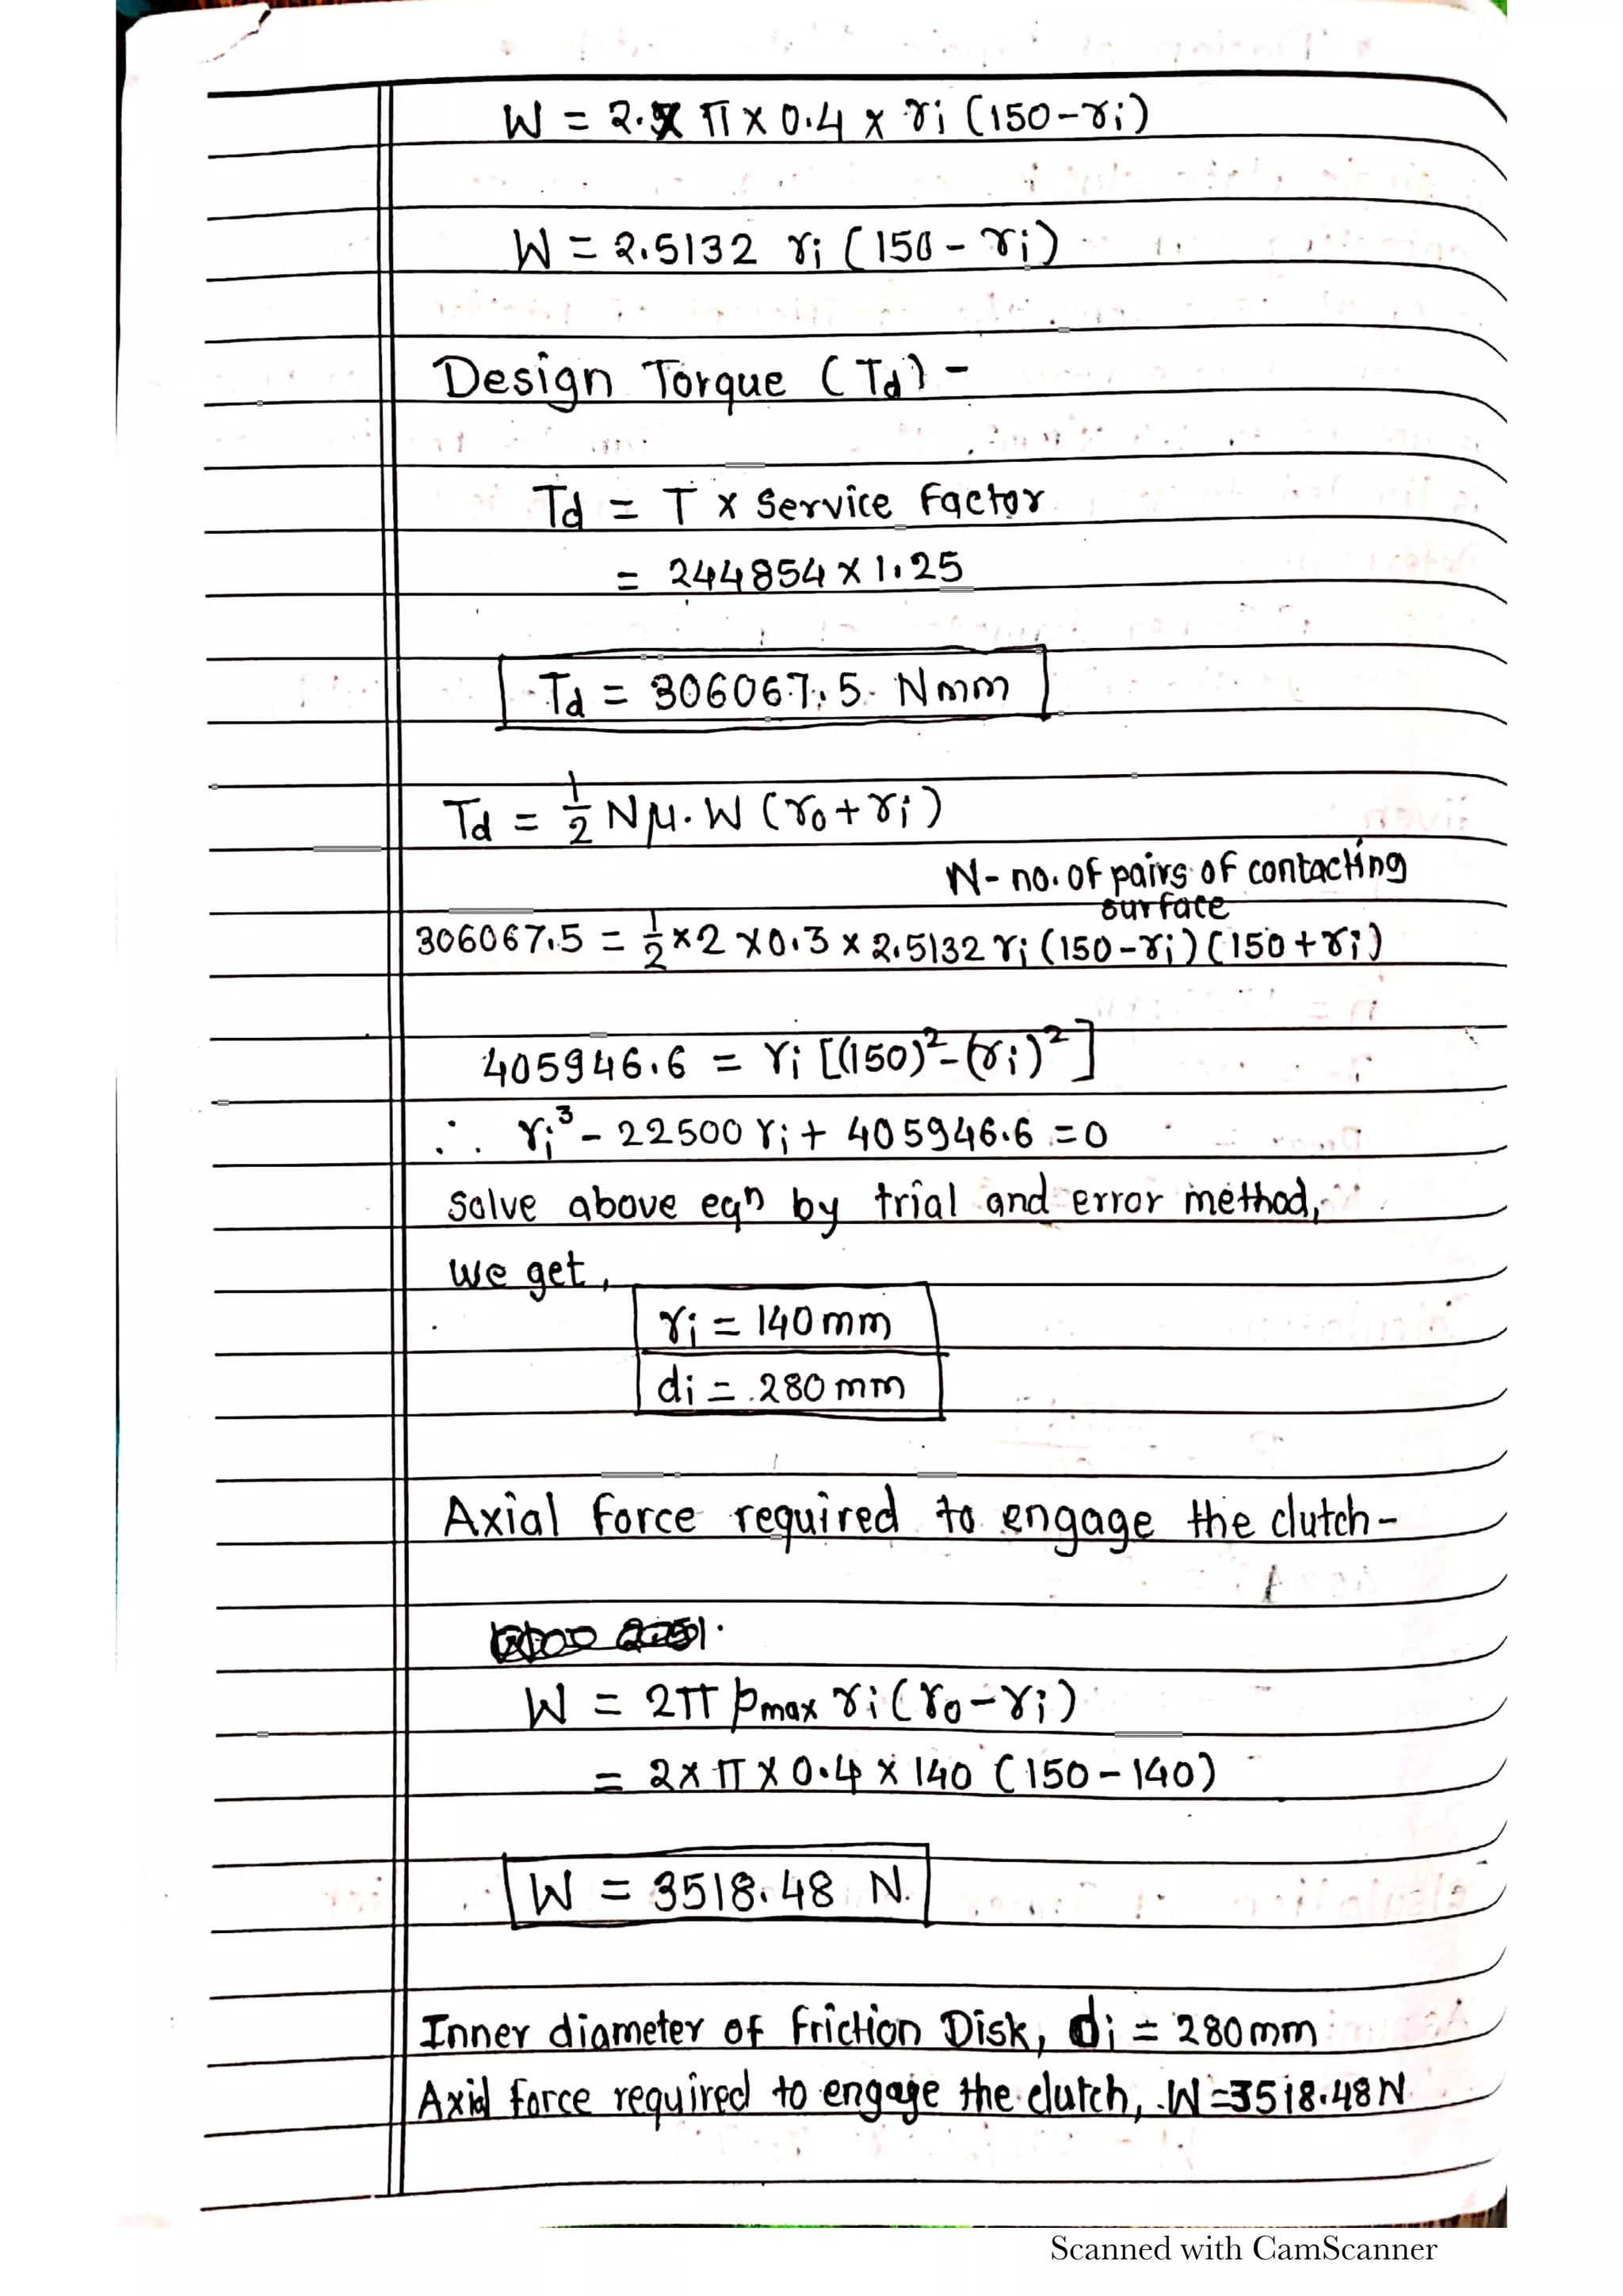 W = 2 × π × 0.4 × ri (150-ri)
W = 2.5132 ri (150 - ri)
Design Torque (Td) -
Td = T × Service Factor
= 244854 × 1.25
Td = 306067.5 Nmm
Td = 1/2 Nμ.W (ro+ri)
N - no. of pairs of contacting
surface
306067.5 = 1/2 ×2 ×0.3 × 2.5132 ri (150-ri) (150+ri)
405946.6 = ri [(150)²-(ri)²]
∴ ri³ - 22500 ri + 405946.6 = 0
Solve above eqn by trial and error method,
we get,
ri = 140 mm
di = 280 mm
Axial force required to engage the clutch -
W = 2π pmax ri (ro-ri)
= 2×π × 0.4 × 140 (150-140)
W = 3518.48 N.
Inner diameter of Friction Disk, di = 280mm
Axial force required to engage the clutch, W=3518.48N
Scanned with CamScanner